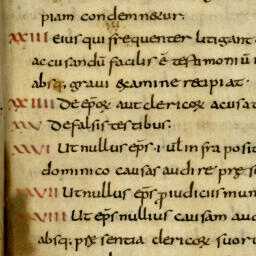 piam condemnetur.
XXIII Eius qui frequenter litigant
accusandū facilis ē testimoniū
absq; graui examine recipiat·
XXIIII De ep̄ox aut clericox accusat
XXV De falsis testibus.
XXVI Ut nullus ep̄s · infra posit
dominico causas audire
XXVII Ut nullus ep̄s iudiciis mun
XXVIII Ut ep̄s nullius causam aud
absq; sentia clericox suor